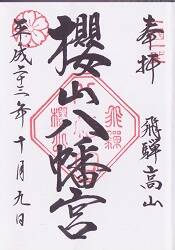 奉拝
飛騨高山
櫻山八幡宮
平成二十三年十月九日